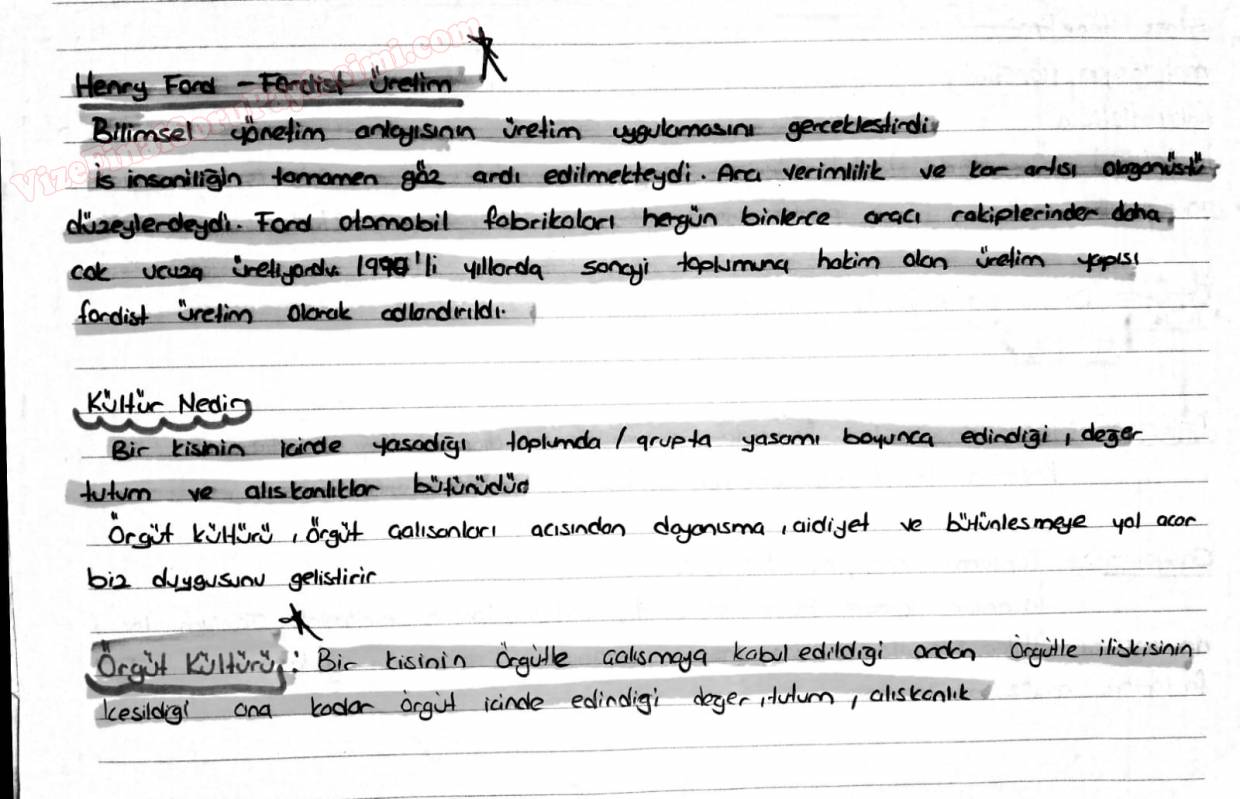 VizeFinalSoruPaylasimi.com
Henry Ford - Fordist Üretim
Bilimsel yönetim anlayısının üretim uygulamasını gerceklestirdi
is insaniliğin tamamen göz ardı edilmekteydi. Ama verimlilik ve kar artısı olaganüstü
düzeylerdeydi. Ford otomobil fabrikaları hergün binlerce aracı rakiplerinden daha
cok ucuza üretiyordu. li yıllarda sanayi toplumuna hakim olan üretim yapısı
fordist üretim olarak adlandırıldı.
Kültür Nedir
Bir kisinin icinde yasadığı toplumda / grupta yasamı boyunca edindiği, değer
tutum ve alıskanlıklar bütünüdür
Örgüt kültürü, örgüt calısanları acısından dayanısma, aidiyet ve bütünlesmeye yol acar
biz duygusunu gelistirir
Örgüt Kültürü: Bir kisinin Örgütle calısmaya kabul edildiği andan Örgütle iliskisinin
kesildigi ana kadar örgüt icinde edindigi değer, tutum, alıskanlık